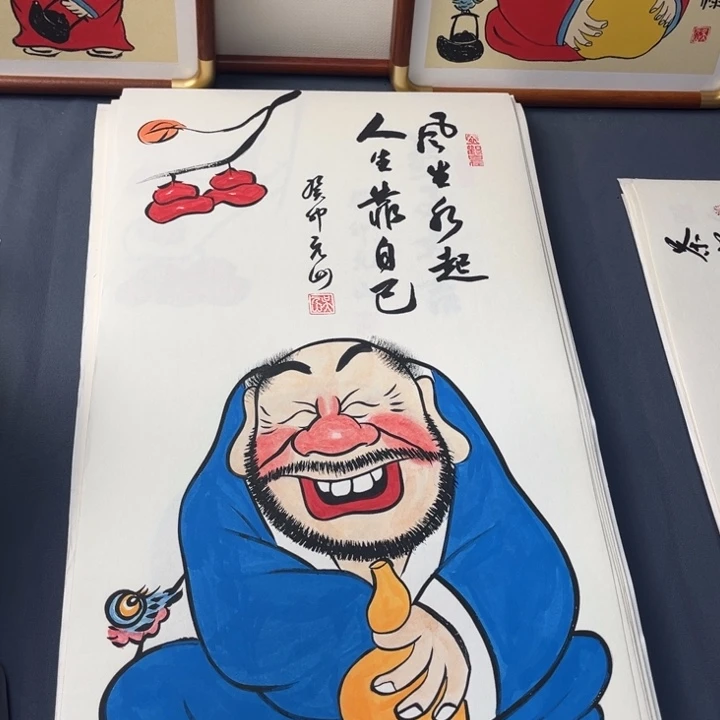 风生水起
人生靠自己
癸卯元山
茶